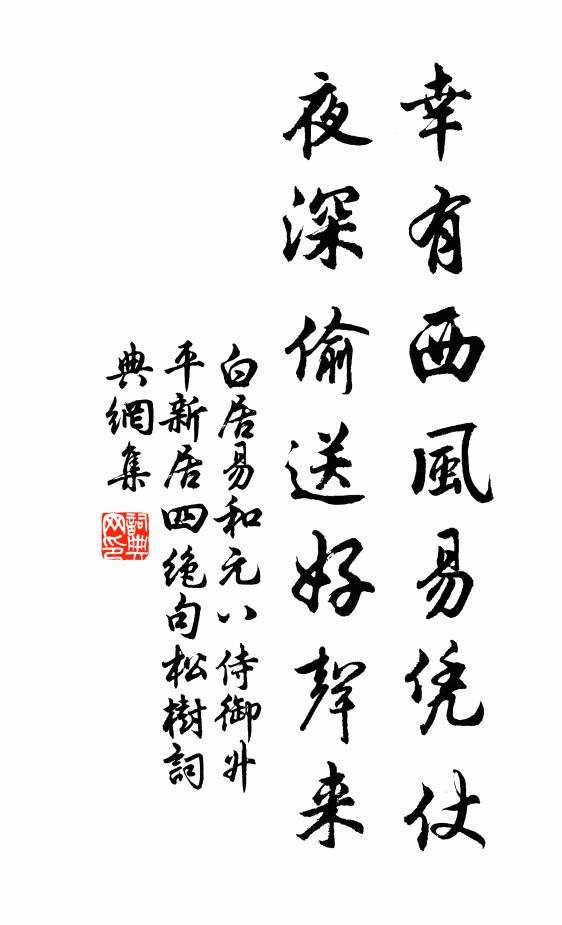 幸有西風易凭仗
夜深偷送好聲来
白居易和元八侍御升
平新居四絶句松樹詞
典網集
詞典
网印